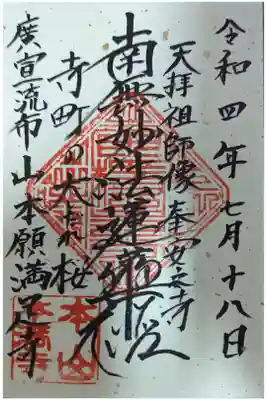 令和四年七月十八日
天拝祖師像奉安之寺
南無妙法蓮華経
寺町の大 桜
廣宣流布山本願満足寺
本山
本満寺